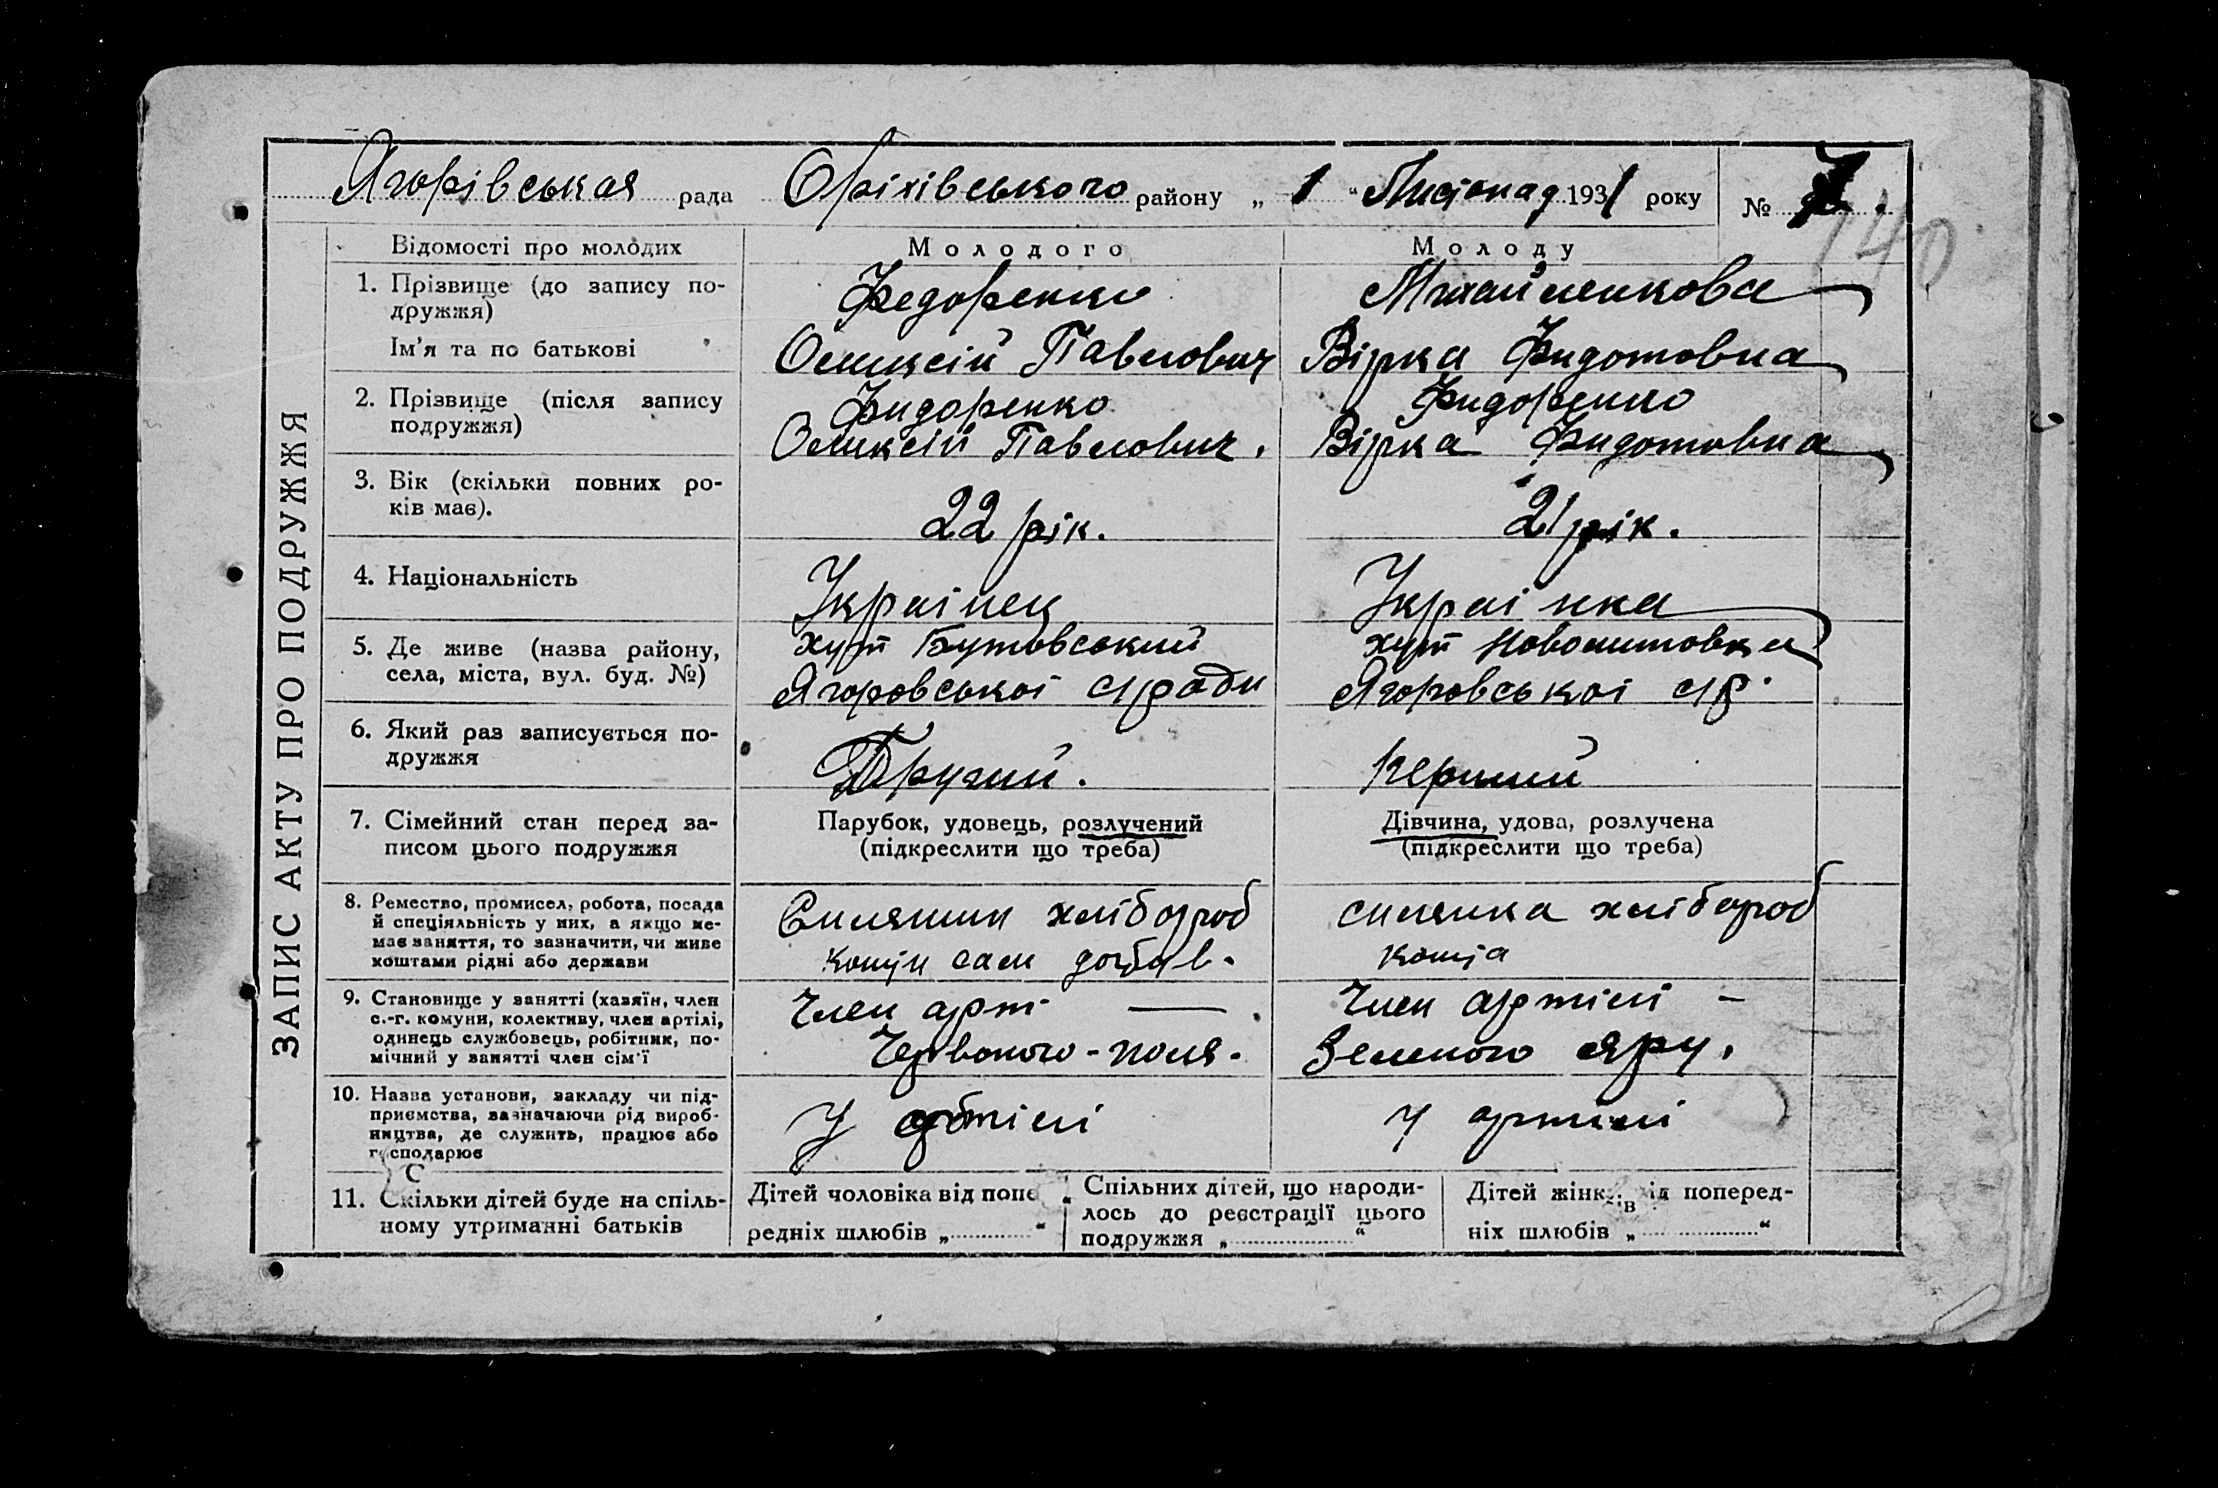 Ягорівськая рада Оріхівського району „ 1 “ Листопад 1931 року №
140
ЗАПИС АКТУ ПРО ПОДРУЖЖЯ
Відомості про молодих
Молодого
Молоду
1. Прізвище (до запису по-
дружжя)
Федоренко
Михайленкова
Ім'я та по батькові
Оликсій Павлович
Вірка Фидотовна
2. Прізвище (після запису
подружжя)
Фидоренко
Оликсій Павлович.
Фидоренко
Вірка Фидотовна
3. Вік (скільки повних ро-
ків має).
22 рік.
21 рік.
4. Національність
Украінец
Украінка
5. Де живе (назва району,
села, міста, вул. буд. №)
хут Бутовський
Ягоровськоі с/ради
хут
Ягоровськоі с/р.
6. Який раз записується по-
дружжя
Другий.
Перший
7. Сімейний стан перед за-
писом цього подружжя
Парубок, удовець, розлучений
(підкреслити що треба)
Дівчина, удова, розлучена
(підкреслити що треба)
8. Ремество, промисел, робота, посада
й спеціяльність у них, а якщо не-
має заняття, то зазначити, чи живе
коштами рідні або держави
хлібороб
сам
силянка хлібороб
9. Становище у занятті (хазяїн, член
с.-г. комуни, колективу, член артілі,
одинець службовець, робітник, по-
мічний у занятті член сім'ї
Член арт —
Червоного-поля.
Член артілі -
Зеленого яру.
10. Назва установи, закладу чи під-
приємства, зазначаючи рід вироб-
ництва, де служить, працює або
господарює
У артілі
у артілі
11. Скільки дітей буде на спіль-
ному утриманні батьків
Дітей чоловіка від попе
редніх шлюбів „ “
Спільних дітей, що народи-
лось до реєстрації цього
подружжя „ “
Дітей жінки від поперед-
ніх шлюбів „ “